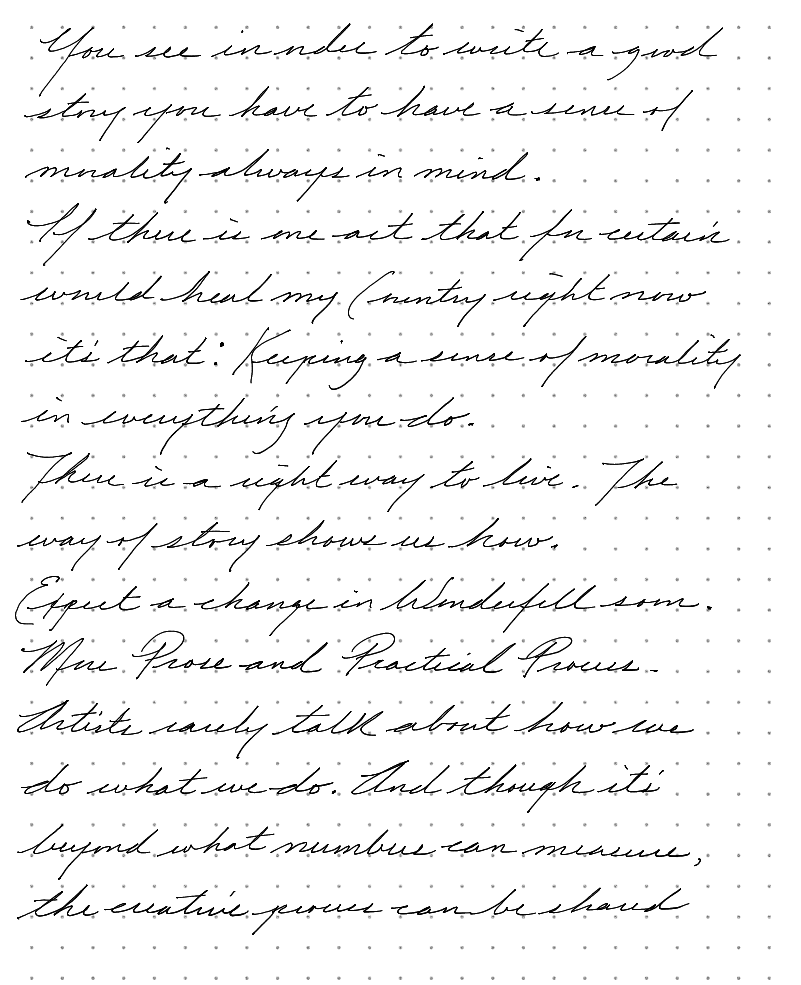 You see in order to write a good
story you have to have a sense of
morality always in mind.
If there is one act that for certain
would heal my Country right now
it's that: Keeping a sense of morality
in everything you do.
There is a right way to live. The
way of story shows us how.
Expect a change in Wonderfell soon.
More Prose and Practical Process.
Artists rarely talk about how we
do what we do. And though it's
beyond what numbers can measure,
the creative process can be shared